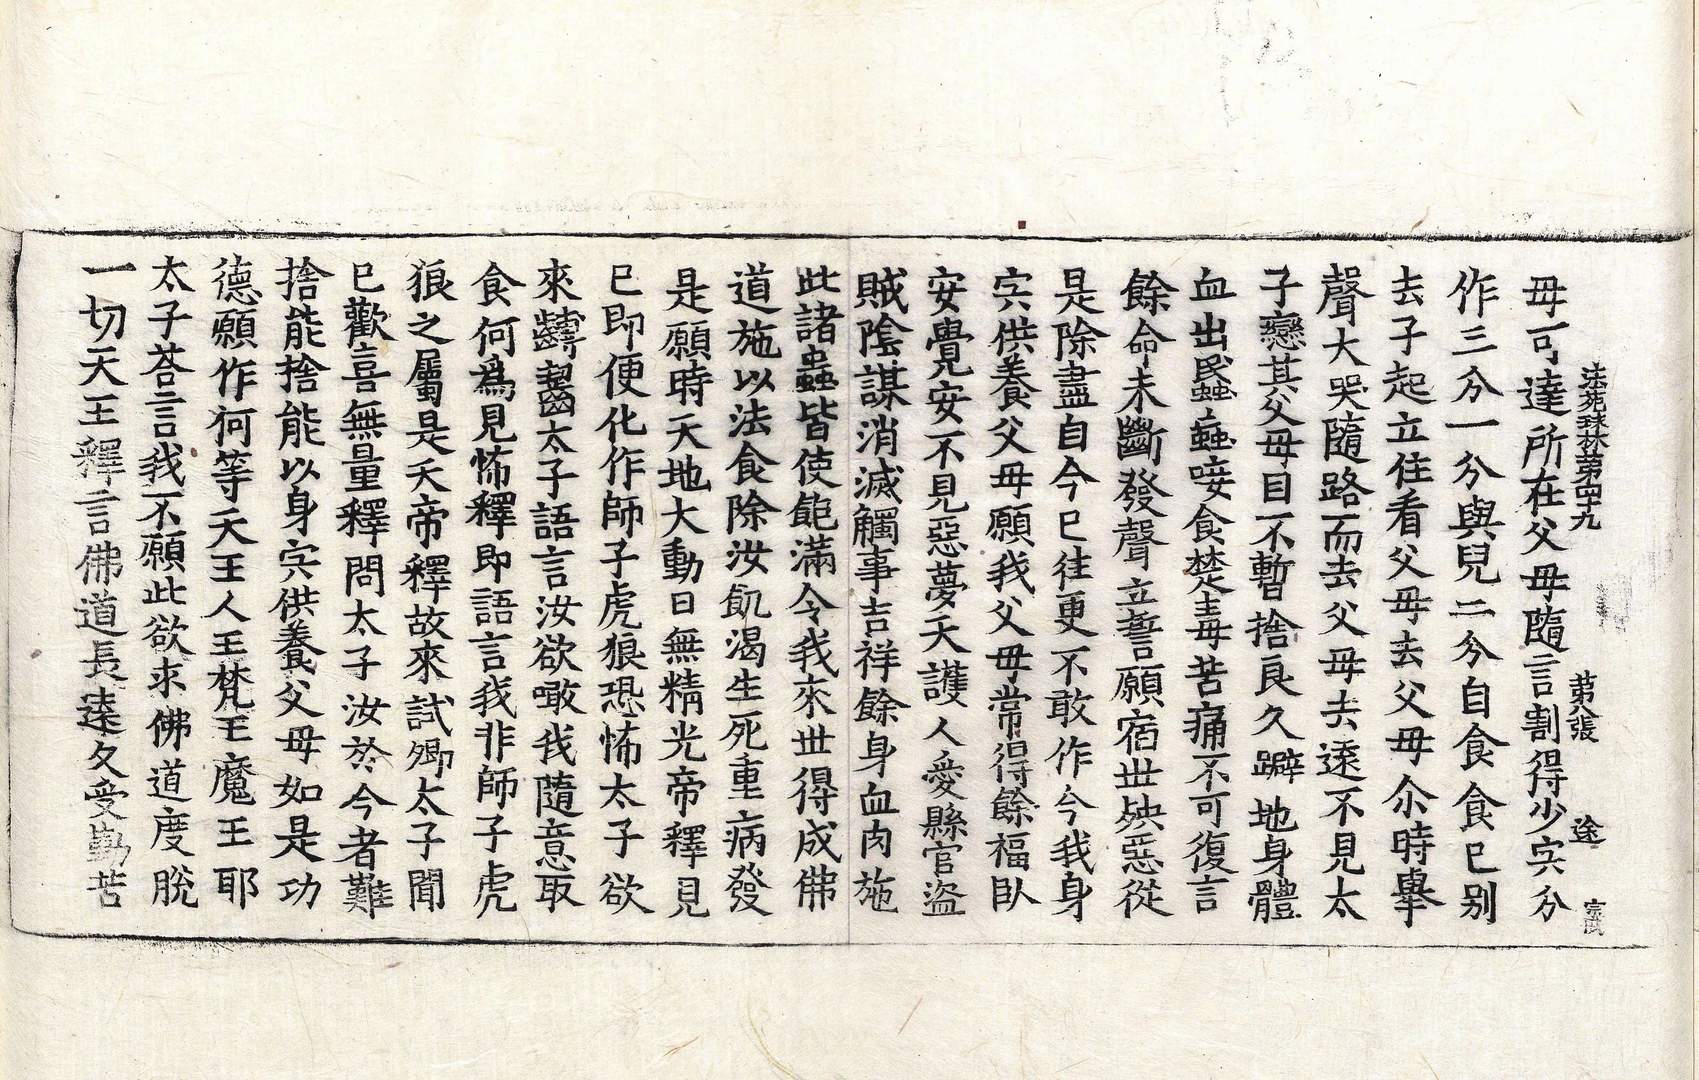 法苑珠林第四十九 第八張 途
母可達所在父母隨言割得少宍分
作三分一分與兒二分自食食已别
去子起立住看父母去父母尒時舉
聲大哭隨路而去父母去遠不見太
子戀其父母目不暫捨良久躃地身體
血出䖟䗈唼食楚毒苦痛不可復言
餘命未斷發聲立誓願宿世殃惡從
是除盡自今已往更不敢作今我身
宍供養父母願我父母常得餘福臥
安覺安不見惡夢天護人愛縣官盜
賊陰謀消滅觸事吉祥餘身血肉施
此諸蟲皆使飽滿令我來世得成佛
道施以法食除汝飢渴生死重病發
是願時天地大動日無精光帝釋見
已即便化作師子虎狼恐怖太子欲
來齧太子語言汝欲噉我隨意取
食何爲見怖釋即語言我非師子虎
狼之屬是天帝釋故來試卿太子聞
已歡喜無量釋問太子汝於今者難
捨能捨能以身宍供養父母如是功
德願作何等天王人王梵王魔王耶
太子荅言我不願此欲求佛道度脫
一切天王釋言佛道長遠久受勤苦